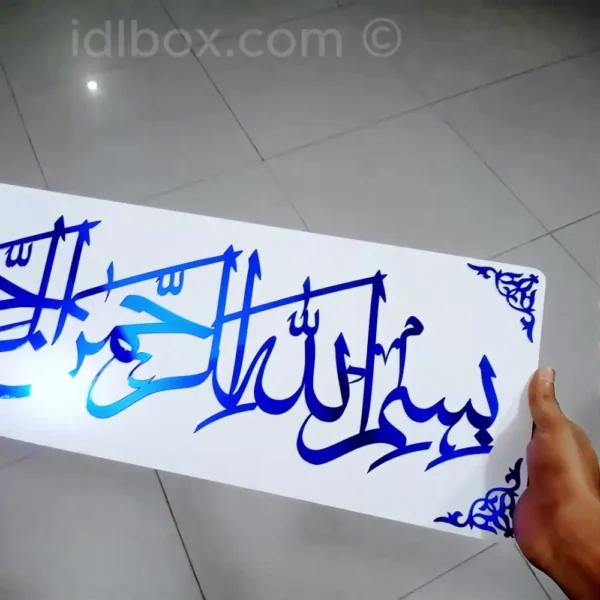 idlbox.com ©
بسم الله الرحمن